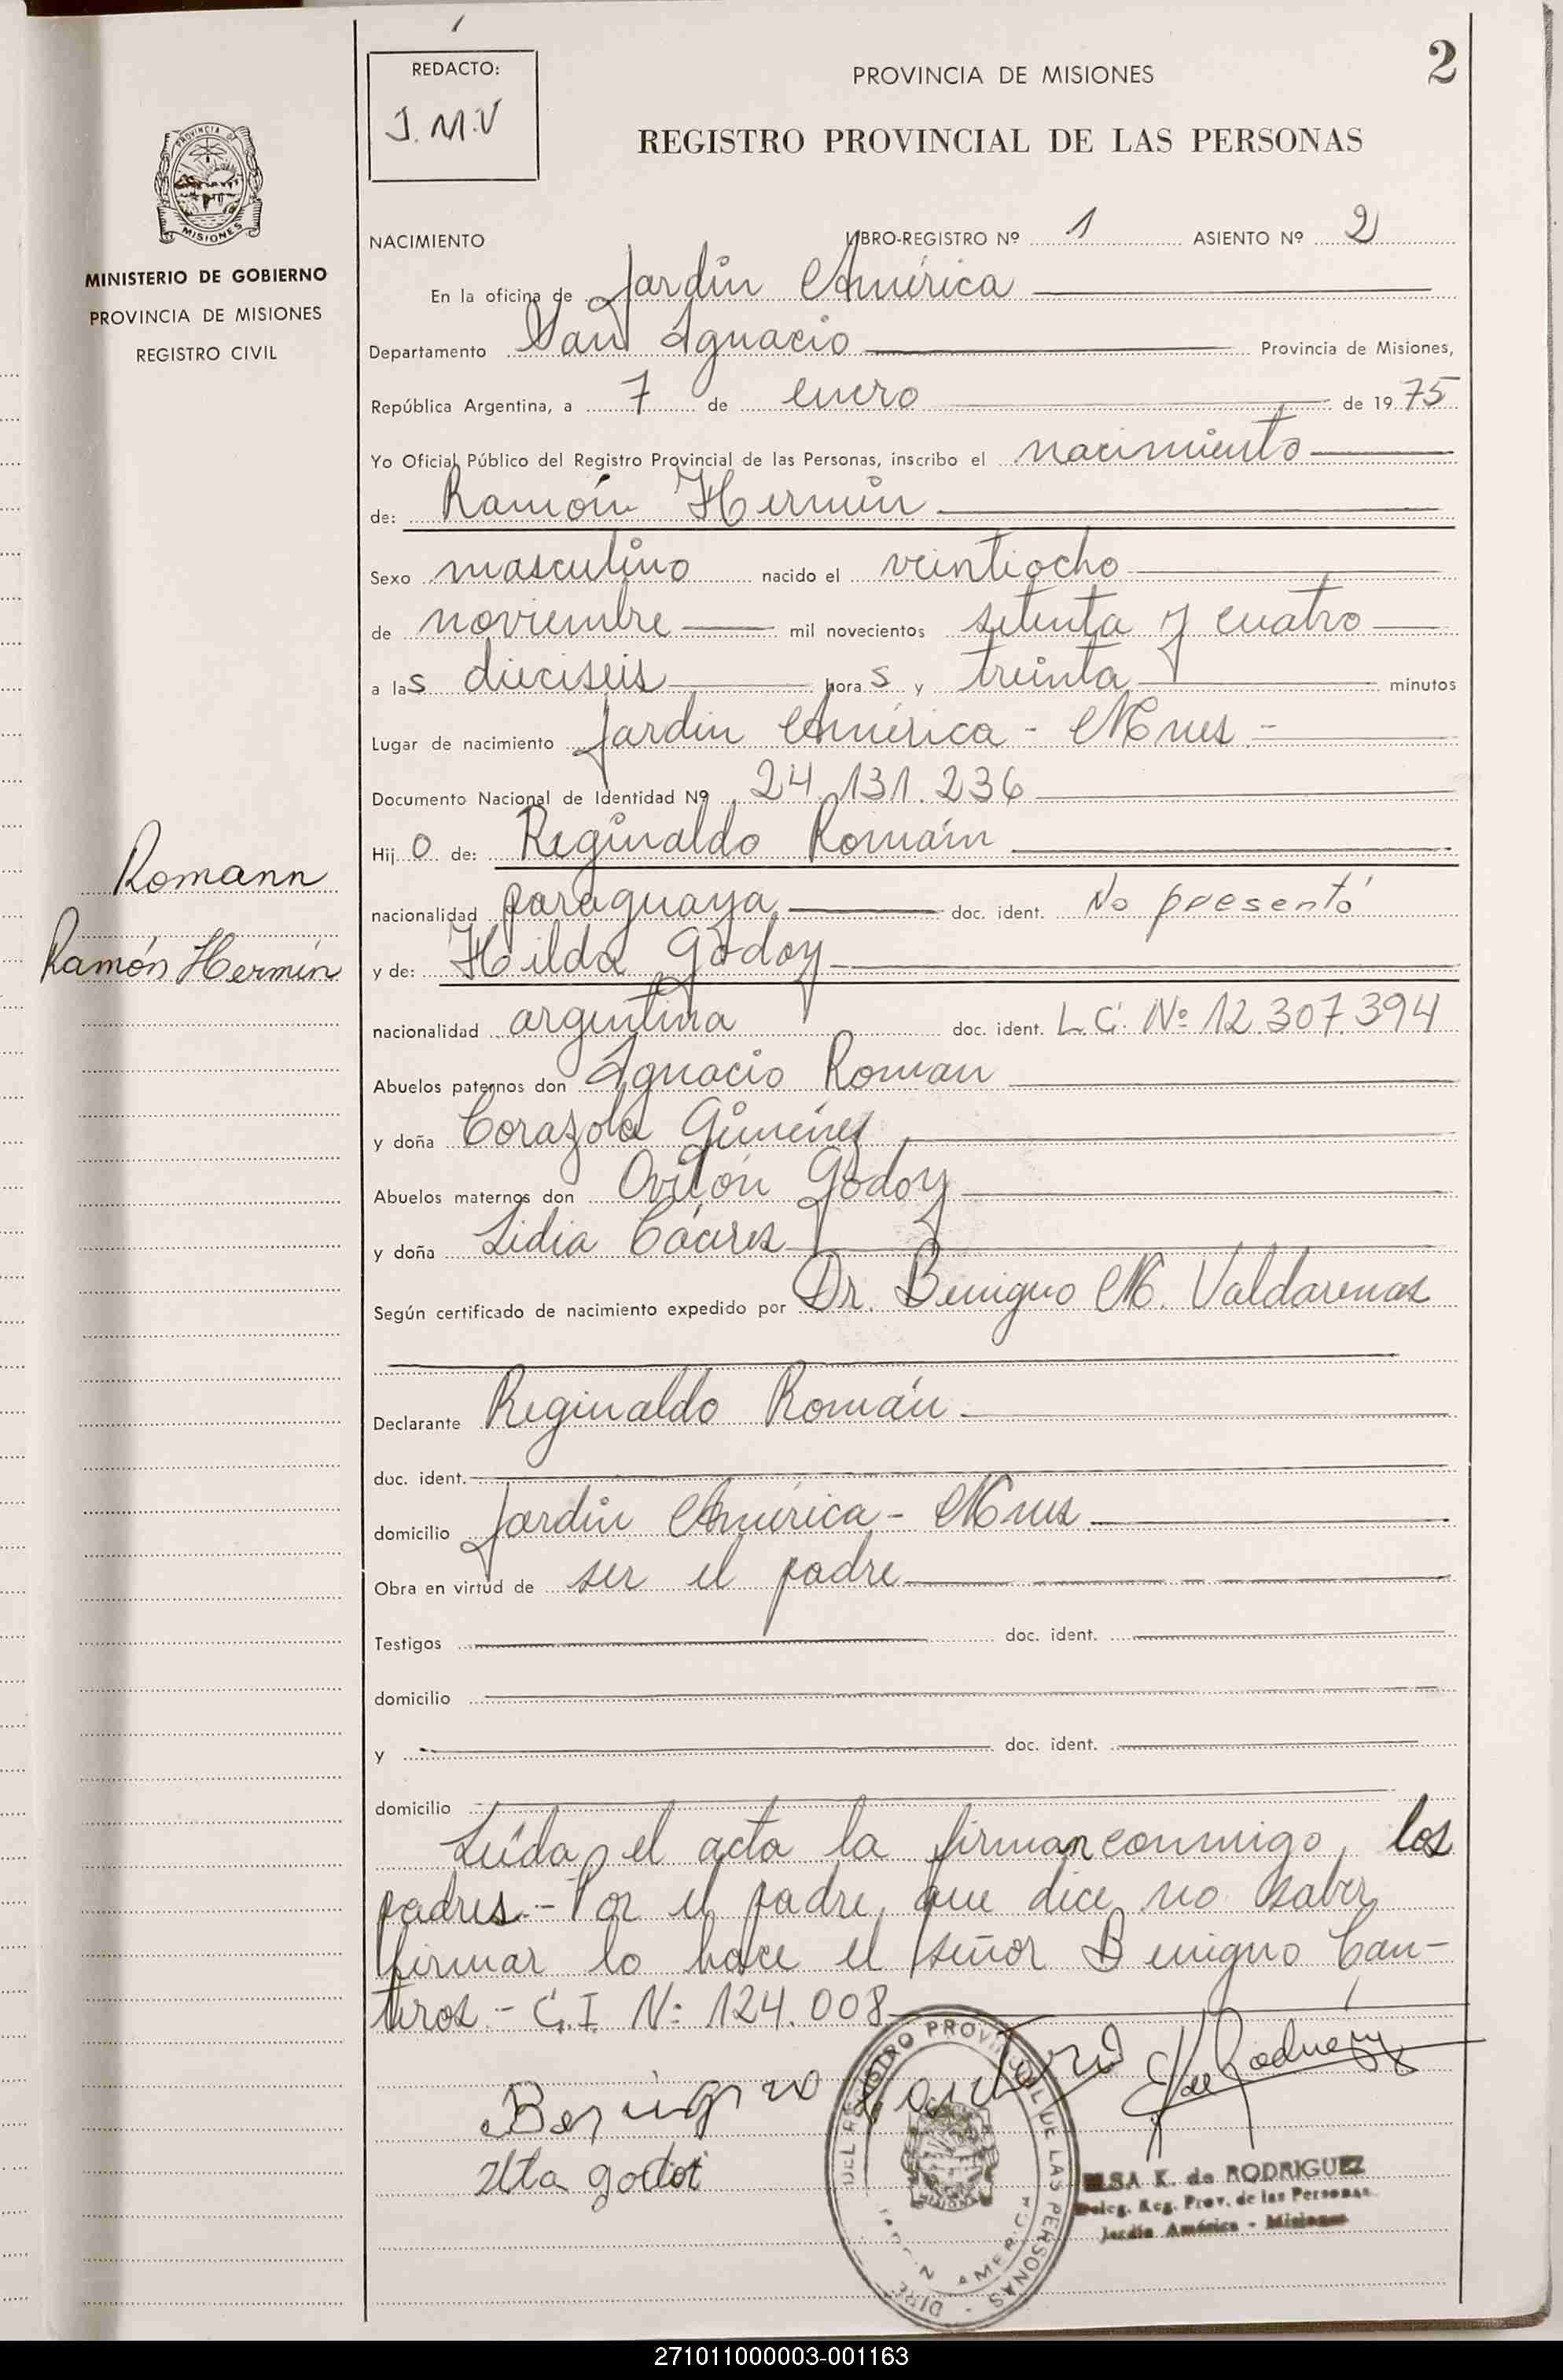 2
REDACTO:
J.M.V
PROVINCIA DE MISIONES
REGISTRO PROVINCIAL DE LAS PERSONAS
PROVINCIA DE
MISIONES
MINISTERIO DE GOBIERNO
PROVINCIA DE MISIONES
REGISTRO CIVIL
NACIMIENTO LIBRO-REGISTRO Nº 1 ASIENTO Nº 2
En la oficina de Jardín América
Departamento San Ignacio Provincia de Misiones,
República Argentina, a 7 de enero de 1975
Yo Oficial Público del Registro Provincial de las Personas, inscribo el nacimiento
de: Ramón Hermin
Sexo masculino nacido el veintiocho
de noviembre mil novecientos setenta y cuatro
a las dieciseis horas y treinta minutos
Lugar de nacimiento Jardín América - Mnes.-
Documento Nacional de Identidad Nº 24.131.236
Hijo de: Reginaldo Román
Romann
nacionalidad paraguaya doc. ident. No presentó
Ramón Hermín
y de: Hilda Godoy
nacionalidad argentina doc. ident. L.C. Nº 12.307.394
Abuelos paternos don Ignacio Roman
y doña Gimenez
Abuelos maternos don Godoy
y doña Lidia Cáceres
Según certificado de nacimiento expedido por Dr. Benigno M.
Declarante Reginaldo Román
doc. ident.
domicilio Jardín América - Mnes.
Obra en virtud de ser el padre
Testigos doc. ident.
domicilio
y doc. ident.
domicilio
Leída el acta la firman conmigo, los
padres.- Por el padre, que dice no saber
firmar lo hace el señor Benigno Can-
teros.- C.I. Nº 124.008
Benigno
DIRE DEL REGISTRO PROVINCIAL DE LAS PERSONAS
MISIONES
JARDIN AMERICA
ELSA K. de RODRIGUEZ
Deleg. Reg. Prov. de las Personas
Jardín América - Misiones
271011000003-001163